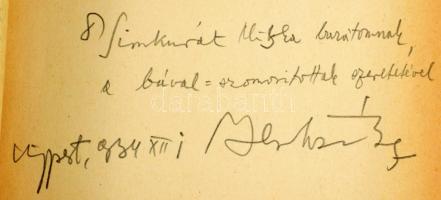 Simkurát Miska barátomnak,
a bával = szomorítottak szeretetével
Ujpest, 934 XII 1